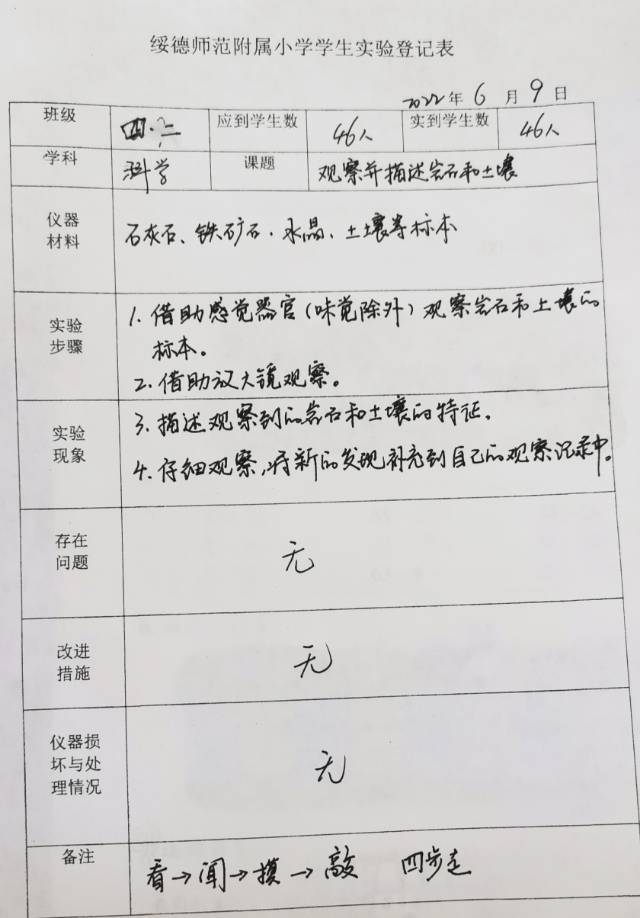 绥德师范附属小学学生实验登记表
2022年6月9日
班级 四.二 应到学生数 46人 实到学生数 46人
学科 科学 课题 观察并描述岩石和土壤
仪器
材料
石灰石、铁矿石.水晶、土壤等标本
实验
步骤
1.借助感觉器官(味觉除外)观察岩石和土壤的
标本。
2.借助放大镜观察。
实验
现象
3.描述观察到的岩石和土壤的特征.
4.仔细观察,将新的发现补充到自己的观察记录中。
存在
问题
无
改进
措施
无
仪器损
坏与处
理情况
无
备注
看→闻→摸→敲 四步走